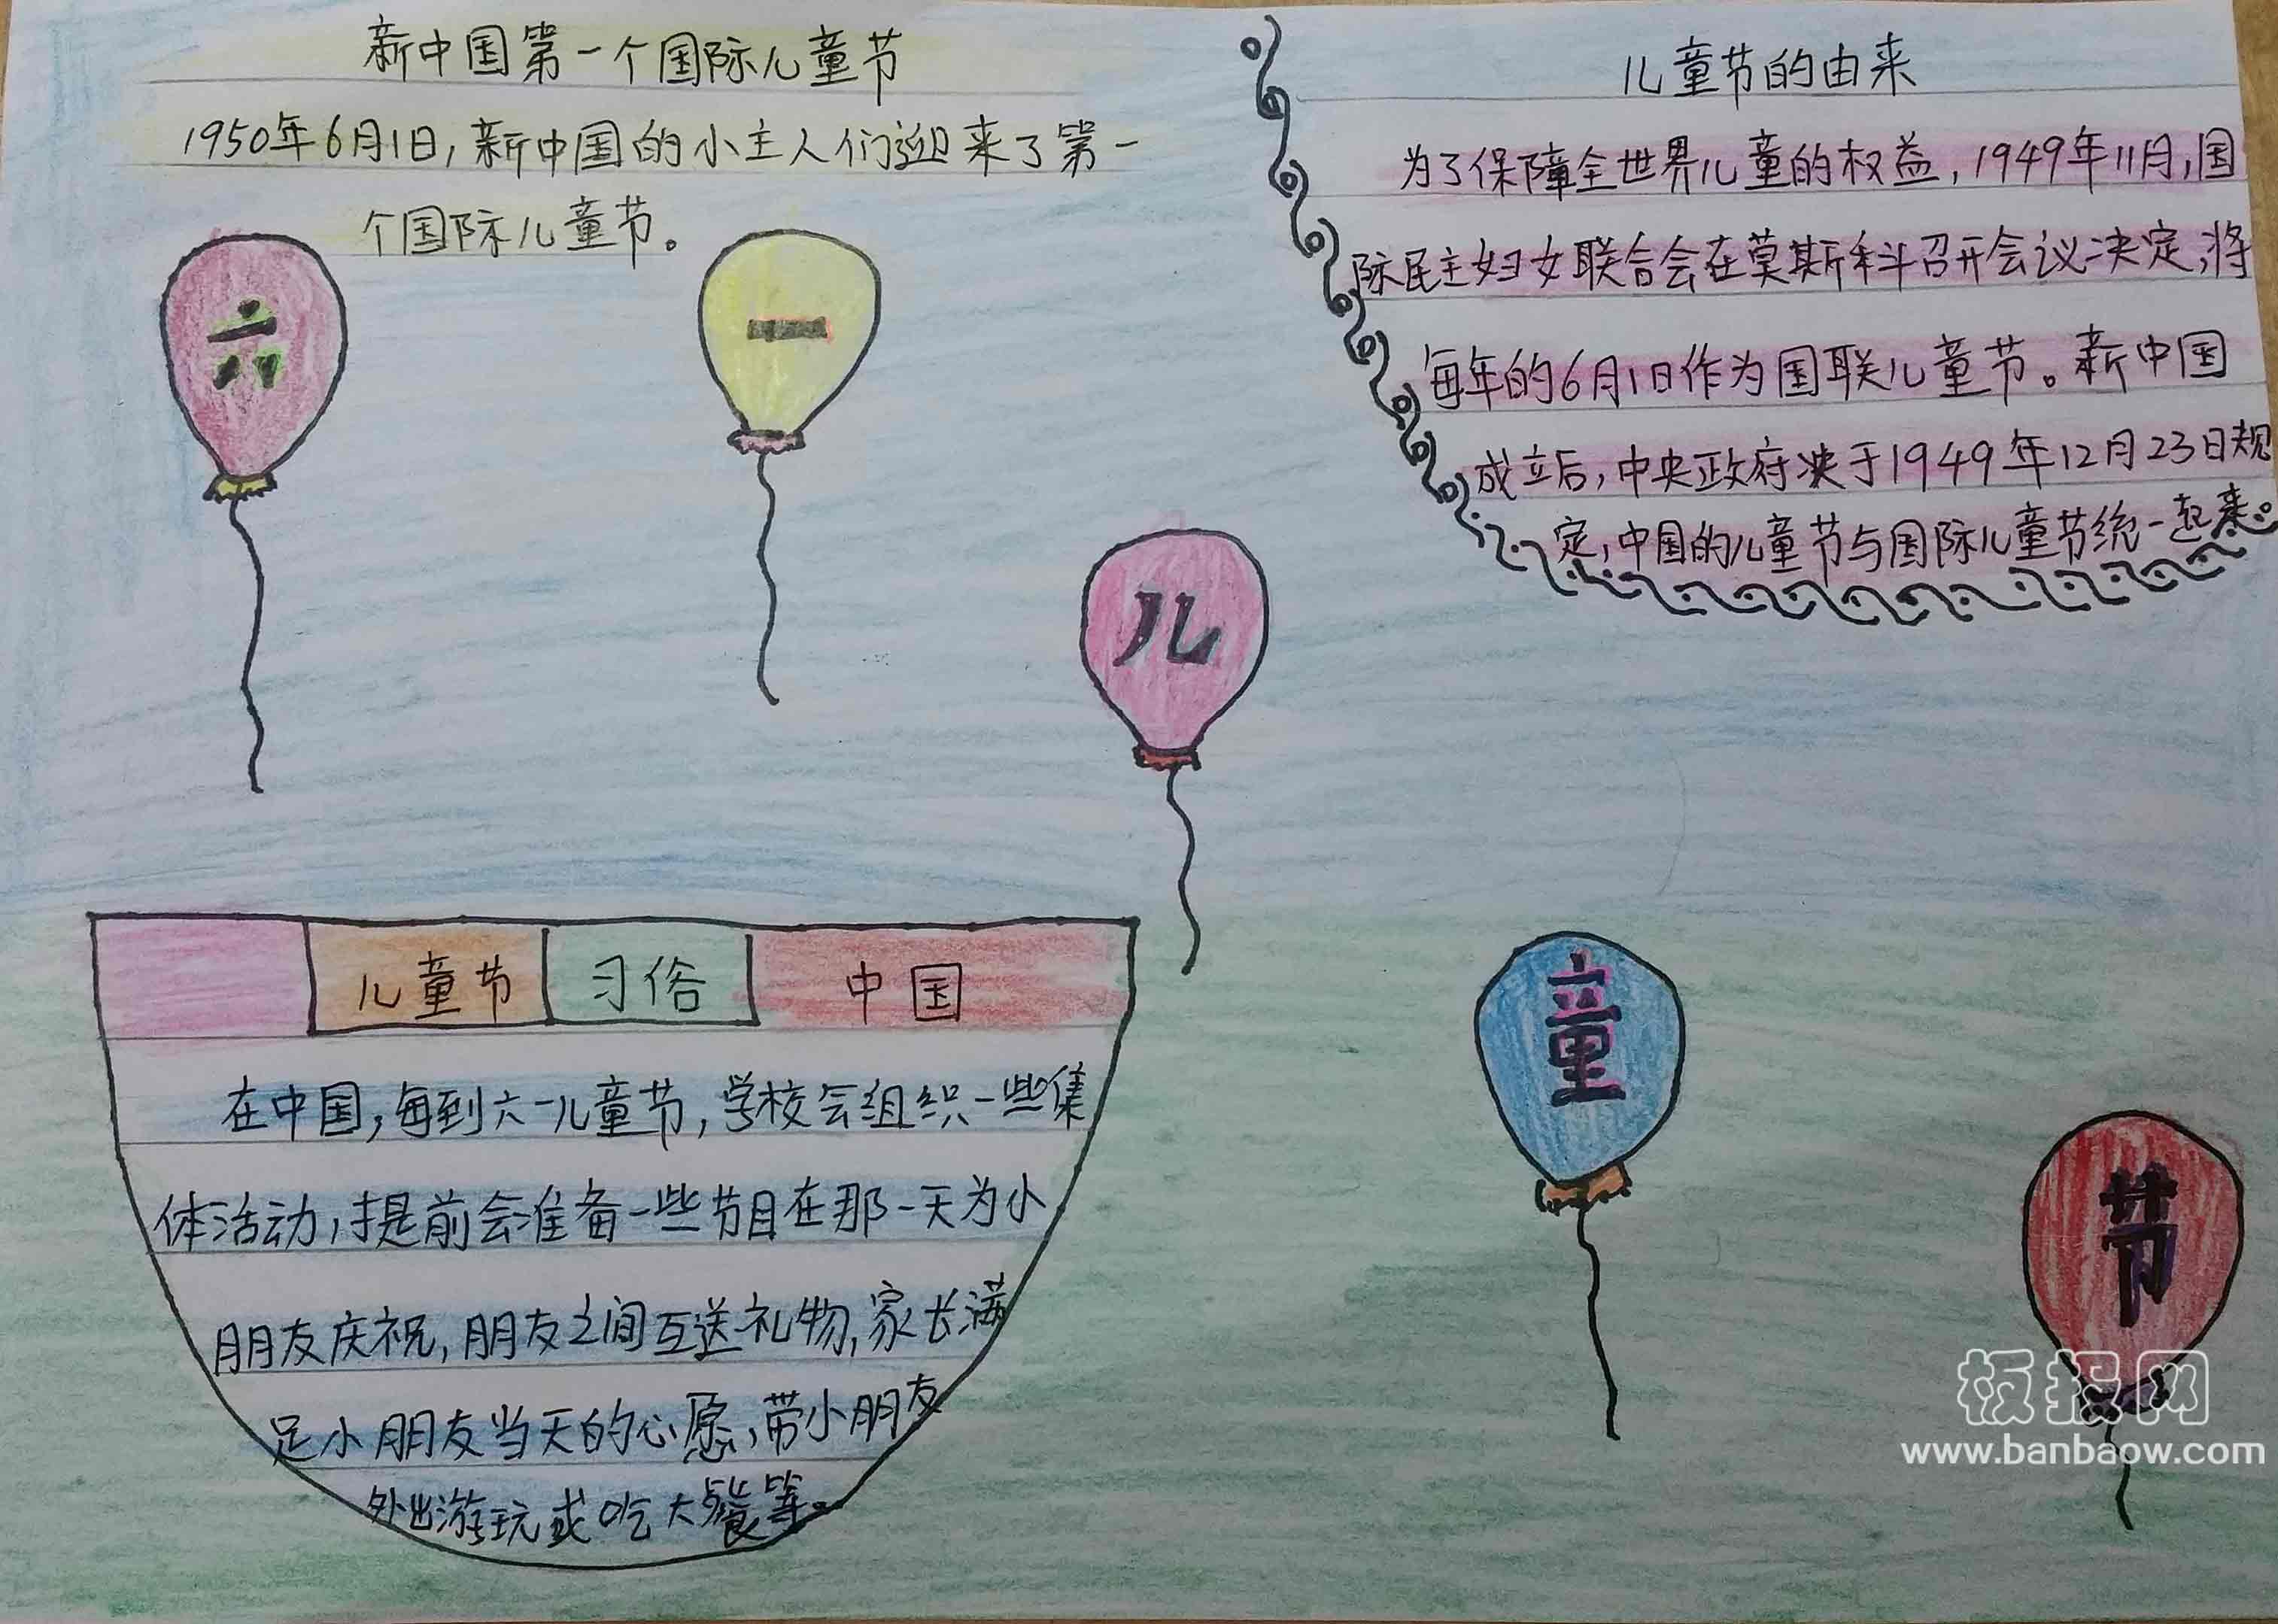 新中国第一个国际儿童节
1950年6月1日,新中国的小主人们迎来了第一
个国际儿童节。
儿童节的由来
为了保障全世界儿童的权益,1949年11月,国
际民主妇女联合会在莫斯科召开会议决定,将
每年的6月1日作为国联儿童节。新中国
成立后,中央政府决于1949年12月23日规
定,中国的儿童节与国际儿童节统一起来。
六
一
儿
童
节
儿童节 习俗 中国
在中国,每到六一儿童节,学校会组织一些集
体活动,提前会准备一些节目在那一天为小
朋友庆祝,朋友之间互送礼物,家长满
足小朋友当天的心愿,带小朋友
外出游玩或吃大餐等。
板报网
www.banbaow.com